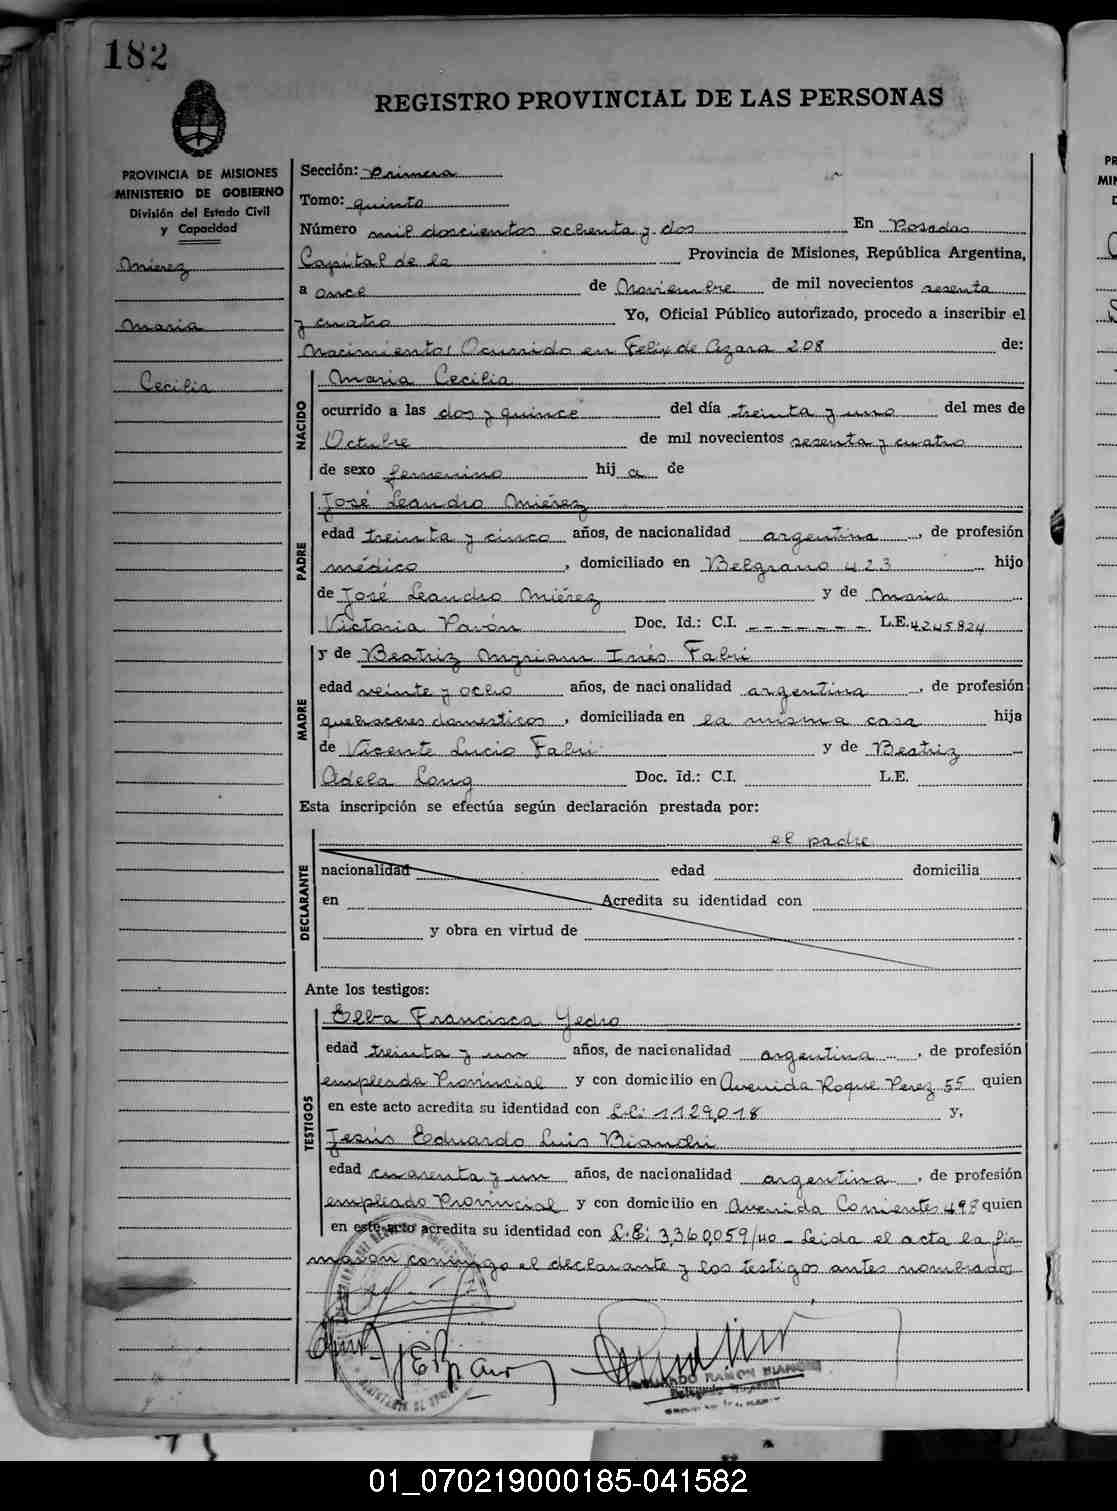 182
REGISTRO PROVINCIAL DE LAS PERSONAS
PROVINCIA DE MISIONES
MINISTERIO DE GOBIERNO
División del Estado Civil
y Capacidad
Miérez
Maria
Cecilia
Sección: Primera
Tomo: quinto
Número mil doscientos ochenta y dos En Posadas
Capital de la Provincia de Misiones, República Argentina,
a once de Noviembre de mil novecientos sesenta
y cuatro Yo, Oficial Público autorizado, procedo a inscribir el
nacimiento: Ocurrido en Felix de Azara 208 de:
NACIDO
Maria Cecilia
ocurrido a las dos y quince del día treinta y uno del mes de
Octubre de mil novecientos sesenta y cuatro
de sexo femenino hij a de
PADRE
José Leandro Miérez
edad treinta y cinco años, de nacionalidad argentina, de profesión
médico, domiciliado en Belgrano 423 hijo
de José Leandro Miérez y de Maria
Victoria Pavón Doc. Id.: C.I. - - - - - - - L.E. 4245824
MADRE
y de Beatriz Myriam Inés Fabri
edad veinte y ocho años, de nacionalidad argentina, de profesión
quehaceres domesticos, domiciliada en la misma casa hija
de Vicente Lucio Fabri y de Beatriz
Adela Long Doc. Id.: C.I. L.E.
Esta inscripción se efectúa según declaración prestada por:
DECLARANTE
el padre
nacionalidad edad domicilia
en Acredita su identidad con
y obra en virtud de
Ante los testigos:
TESTIGOS
Elba Francisca Yedro
edad treinta y un años, de nacionalidad argentina, de profesión
empleada Provincial y con domicilio en Avenida Roque Perez 55 quien
en este acto acredita su identidad con L.C: 1.129.018 y,
Jesús Eduardo Luis Bianchi
edad cuarenta y un años, de nacionalidad argentina, de profesión
empleado Provincial y con domicilio en Avenida Corrientes 498 quien
en este acto acredita su identidad con L.E: 3,360,059/40 - Leida el acta la fir-
maron conmigo el declarante y los testigos antes nombrados
RAMON
01_070219000185-041582